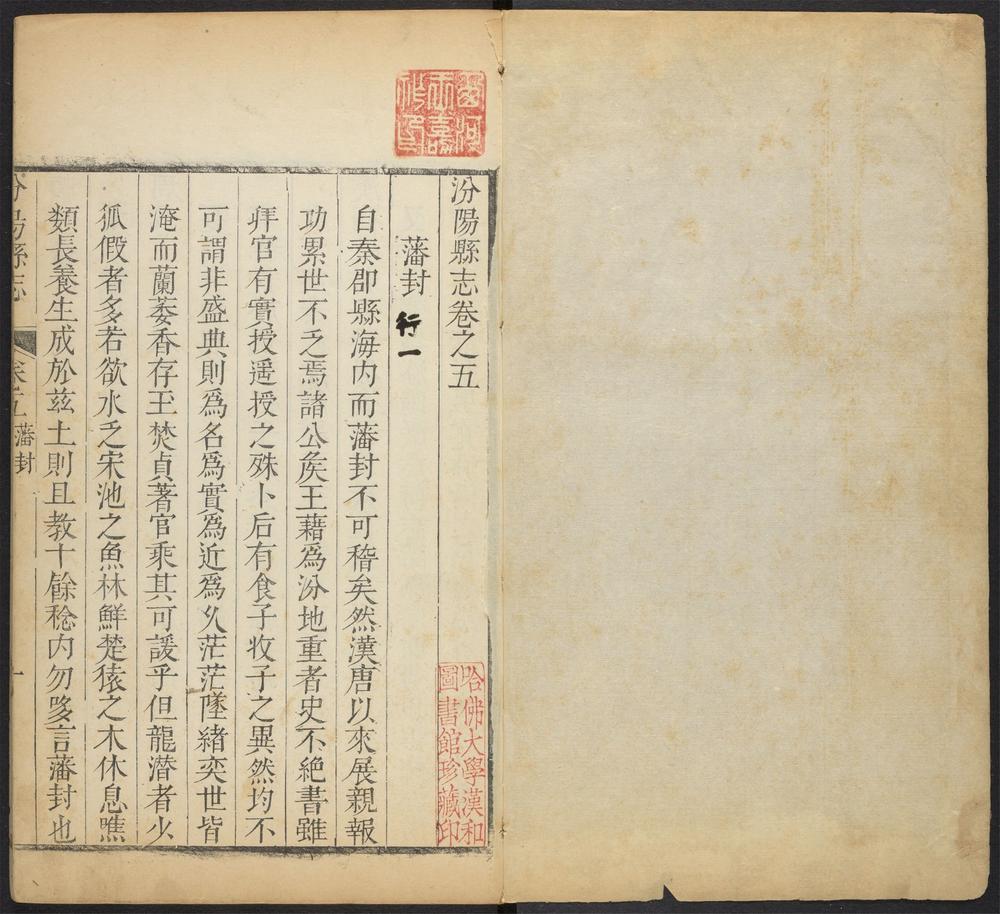 汾陽縣志卷之五
藩封 行一
自秦郡縣海内而藩封不可稽矣然漢唐以來展親報
功累世不乏焉諸公矦王藉為汾地重者史不絶書雖
拜官有實授遥授之殊卜后有食子牧子之異然均不
可謂非盛典則爲名爲實爲近爲乆茫茫墜緒奕世皆
淹而蘭萎香存玉焚貞著官乘其可諼乎但龍潜者少
狐假者多若欲水乏宋池之魚林鮮楚猿之木休息噍
類長養生成於兹土則且教十餘稔内勿哆言藩封也
汾陽縣志 卷五 藩封 一
哈佛大學漢和
圖書館珍藏印